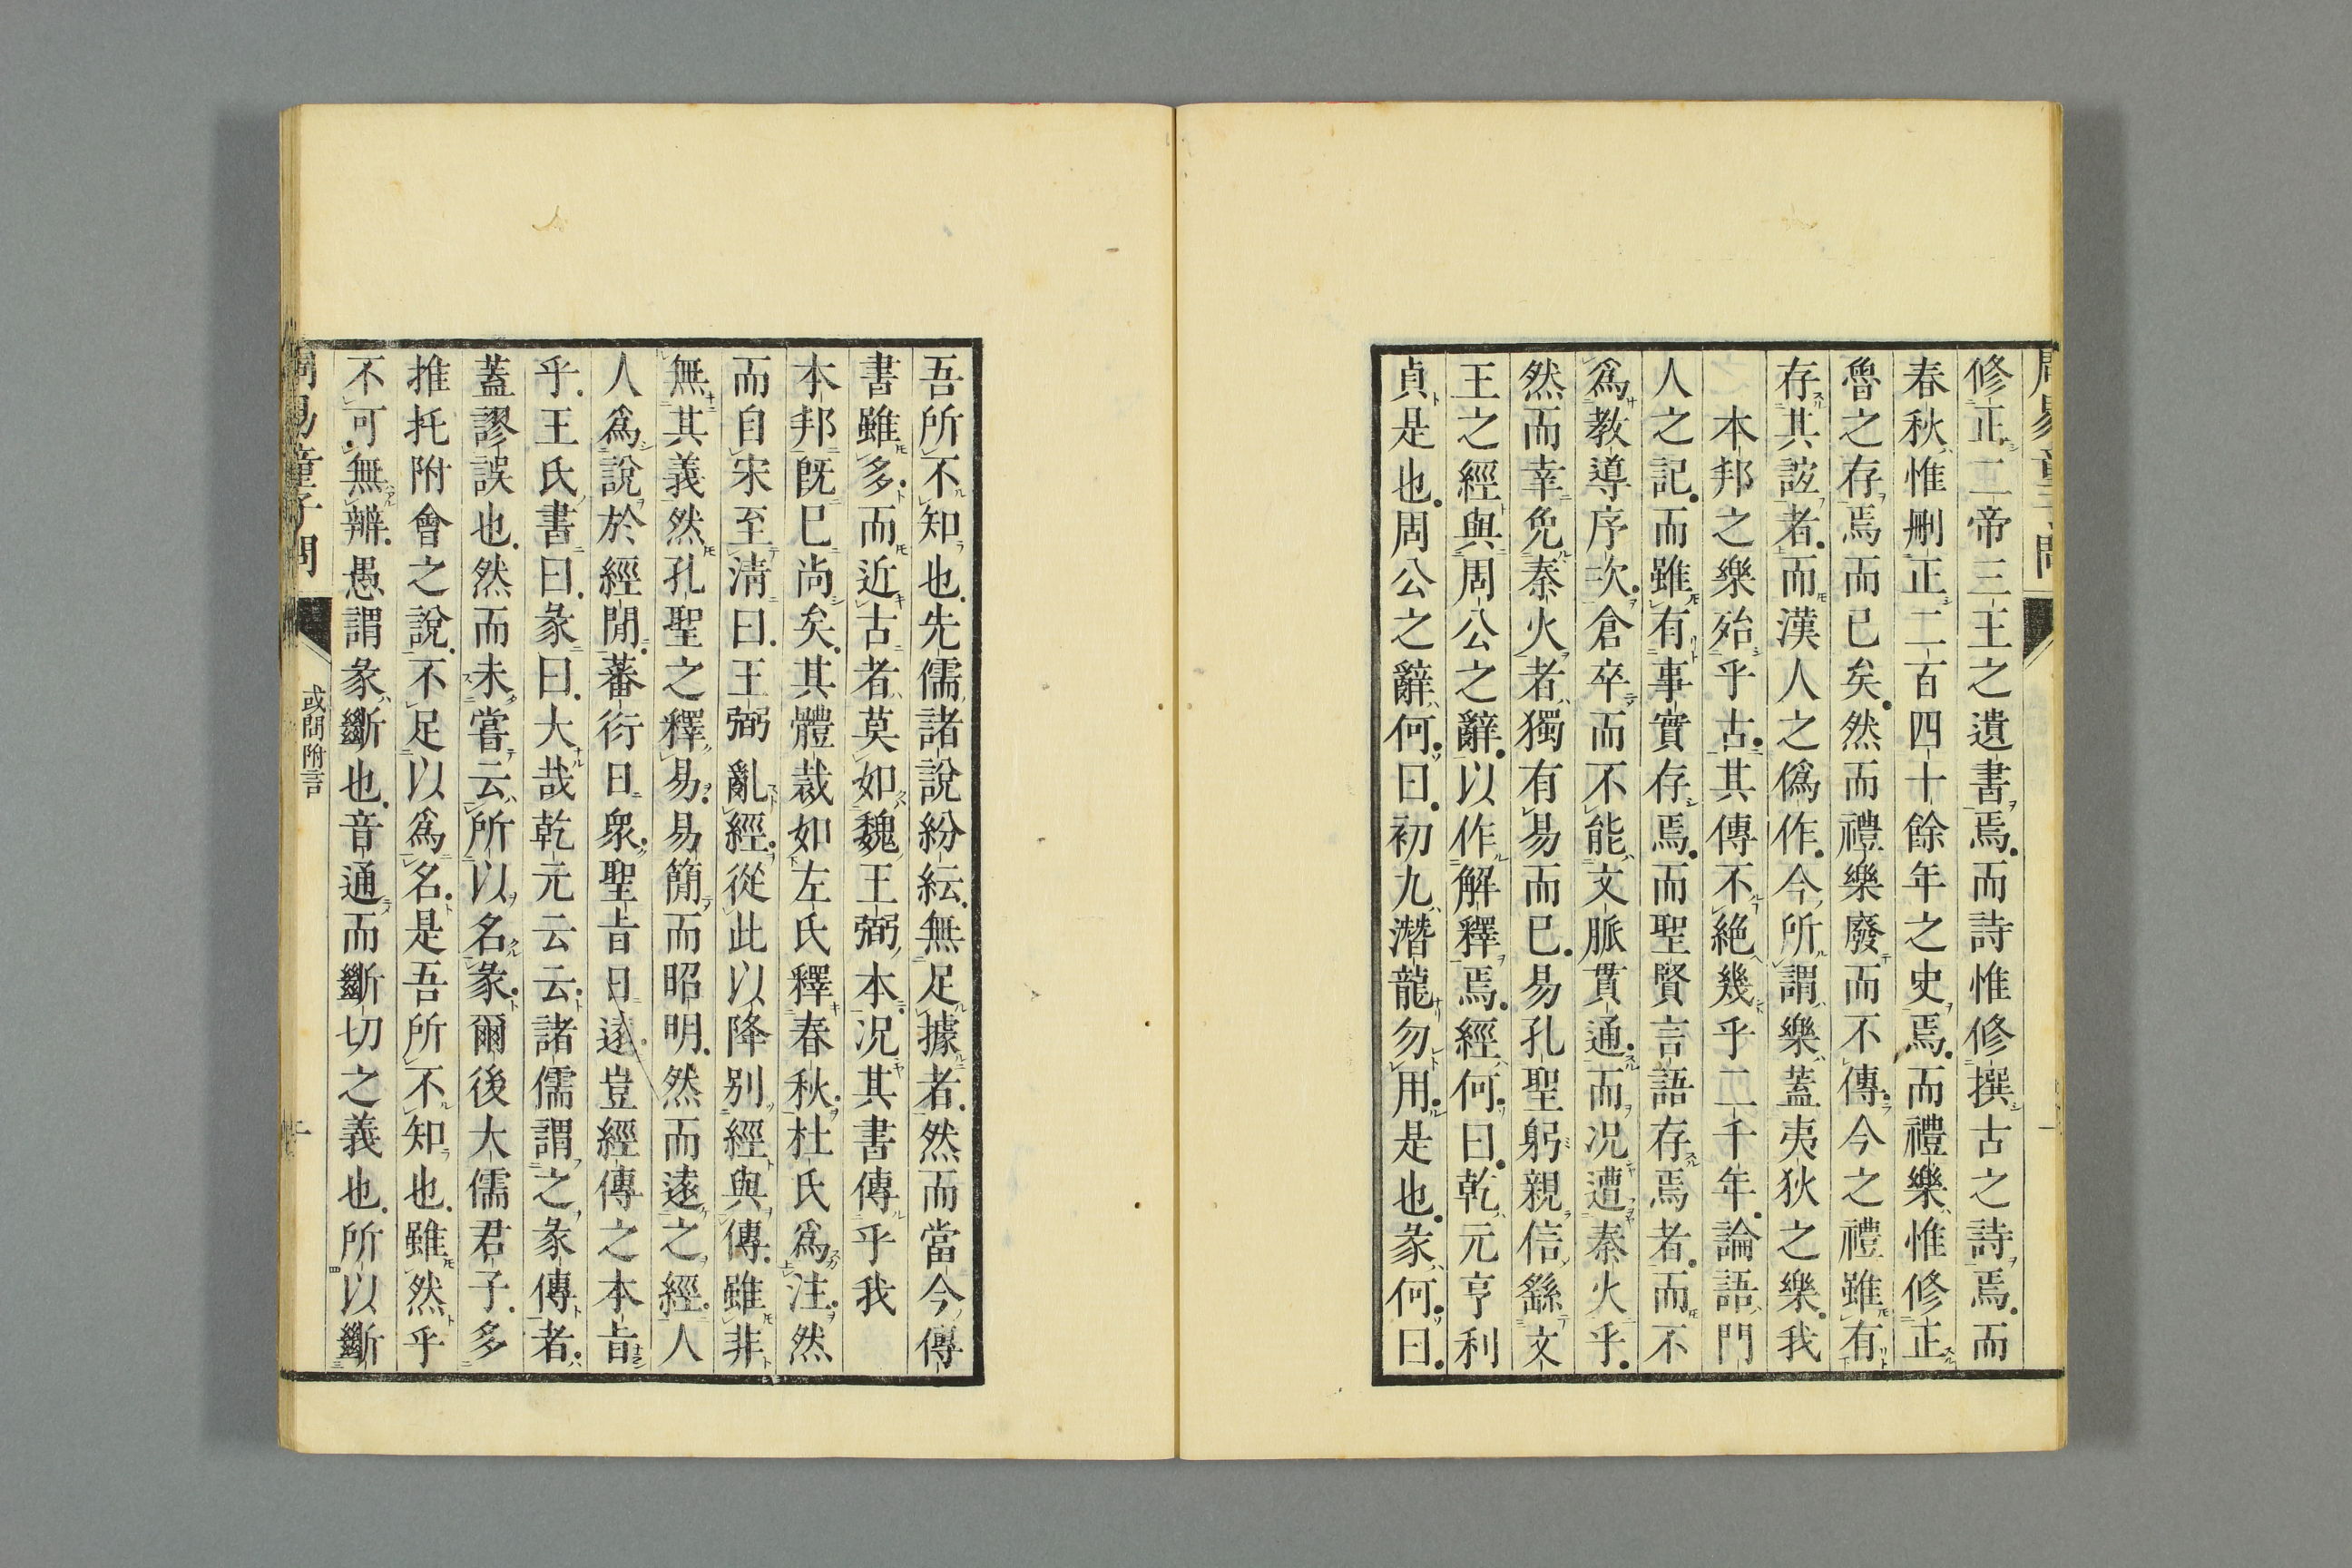 修正二帝三王之遺書焉而詩惟修撰古之詩焉而
春秋惟刪正二百四十餘年之史焉而禮樂惟修正
魯之存焉而已矣然而禮樂廢而不傳今之禮雖有
存其說者而漢人之偽作今所謂樂蓋夷狄之樂我
本邦之樂殆乎古其傳不絕幾乎二千年論語門
人之記而雖有事實存焉而聖賢言語存焉者而不
爲教導序次倉卒而不能文脈貫通而況遭秦火乎
然而幸免秦火者獨有易而已易孔聖躬親信繇文
王之經與周公之辭以作解釋焉經何曰乾元亨利
貞是也周公之辭何曰初九潛龍勿用是也彖何曰
吾所不知也先儒諸說紛紜無足據者然而當今傳
書雖多而近古者莫如魏王弼本況其書傳乎我
本邦既已尚矣其體裁如左氏釋春秋杜氏爲注然
而自宋至淸曰王弼亂經從此以降別經與傳雖非
無其義然孔聖之釋易易簡而昭明然而遠之經人
人爲說於經閒蕃衍日衆聖旨日遠豈經傳之本旨
乎王氏書曰彖曰大哉乾元云云諸儒謂之彖傳者
蓋謬誤也然而未嘗云所以名彖爾後大儒君子多
推托附會之說不足以爲名是吾所不知也雖然乎
不可無辨愚謂彖斷也音通而斷切之義也所以斷
周易童子問
或問附言